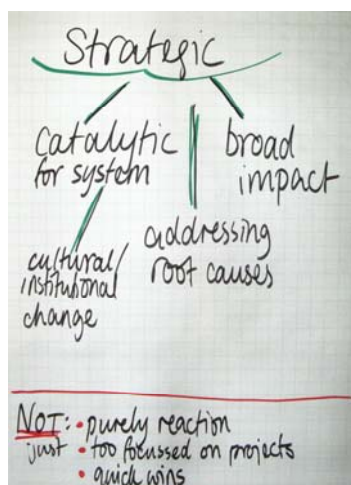 Strategic
catalytic
for system
broad
impact
cultural/
institutional
change
addressing
root causes
NOT: • purely reaction
just • too focussed on projects
• quick wins